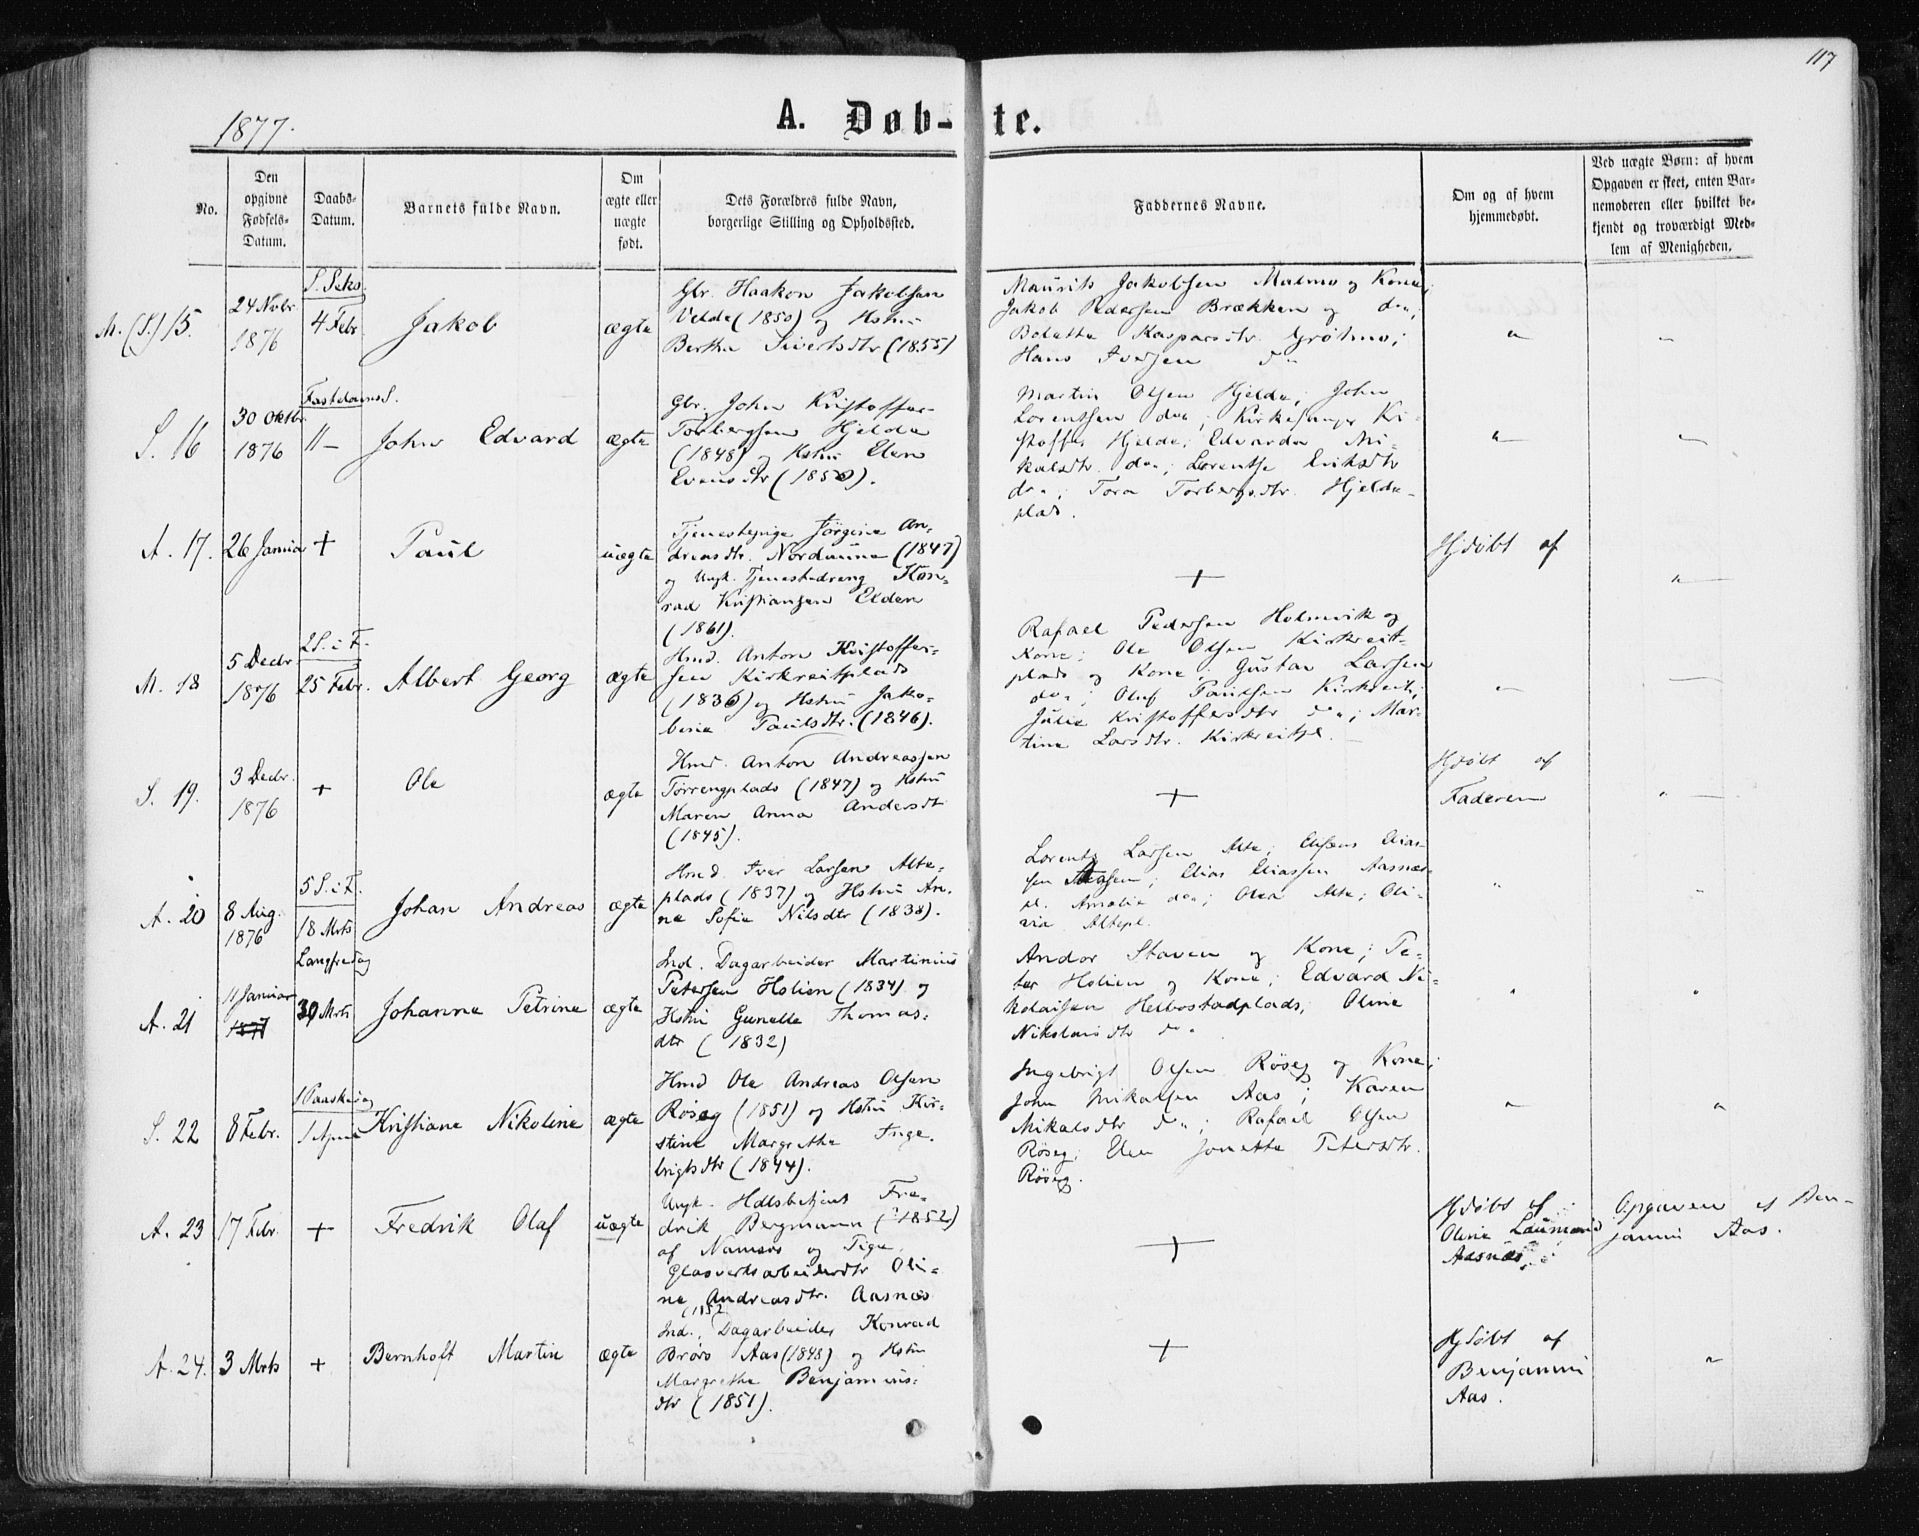 117
1877.
A. Døb-te.
No.
Den opgivne Fødsels-Datum.
Daabs-Datum.
Barnets fulde Navn.
Om ægte eller uægte født.
Dets Forældres fulde Navn, borgerlige Stilling og Opholdssted.
Faddernes Navne.
Om og af hvem hjemmedøbt.
Ved uægte Børn: af hvem Opgaven er skeet, enten Barnemoderen eller hvilket bekjendt og troværdigt Medlem af Menigheden.
M. (S.) 15.
24 Novbr
1876
S. Seks.
4 Febr.
Jakob
ægte
Gbr. Haakon Jakobsen
Velde (1850) og Hstru
Bertha Sivertsdtr (1855)
Maurits Jakobsen Malmo og Kone;
Jakob Pedersen Brækken og do;
Boletta Kasparsdtr. Grøtmo;
Hans Iversen do
"
"
S. 16
30 Oktbr
1876
Fastelavns S.
11-
John Edvard
ægte
Gbr. John Kristoffer
Torbergsen Hjelde
(1848) og Hstru Elen
Evensdtr (1850).
Martin Olsen Hjelde; John
Lorentsen do; Kirkesanger Kri-
stoffer Hjelde; Edvarda Mi-
kalsdtr. do; Lorentse Eriksdtr
do; Tora Torbergsdtr. Hjelde-
plads.
"
"
A. 17.
26 Januar
+
Paul
uægte
Tjenestepige Jørgine An-
dreasdtr. Nordaune (1847)
og Ungk. Tjenestedreng Kon-
rad Kristiansen Elden
(1861).
+
Hjdøbt af
"
M. 18
5 Decbr
1876
2 S. i F.
25 Febr.
Albert Georg
ægte
Hmd. Anton Kristoffer-
sen Kirkreitplads
(1836) og Hstru Jako-
bine Paulsdtr. (1846).
Rafael Pedersen Holmvik og
Kone; Ole Olsen Kirkreit-
plads og Kone; Gustav Larsen
do; Oluf Paulsen Kirkreit;
Julie Kristoffersdtr do; Mar-
tine Larsdtr. Kirkreitpl.
"
S. 19.
3 Decbr.
1876
+
Ole
ægte
Hmd. Anton Andreassen
Tørrengplads (1847) og Hstru
Maren Anna Andersdt
(1845).
+
Hjdøbt af
Faderen
"
A. 20
8 Aug.
1876
5 S. i F.
18 Mrts
Johan Andreas
ægte
Hmd. Iver Larsen Alte-
plads (1837) og Hstru An-
ne Sofie Nilsdtr (1838).
Lorents Larsen Alte; Elias-
sen; Elias Eliassen Aasnæs-
pl. Amalie do; Olea Alte; Oli-
via Altepl.
"
"
A. 21
11 Januar
1877
Langfredag
30 Mrts
Johanna Petrine
ægte
Ind. Dagarbeider Martinius
Petersen Holien (1834) og
Hstru Gunelle Thomas-
dtr (1832)
Andor Staven og Kone; Pe-
ter Holien og Kone; Edvard Ni-
kolaisen Helbostadplads; Oline
Nikolaisdtr do
"
"
S. 22
8 Febr.
1 Paaskedag
1 April
Kristiane Nikoline
ægte
Hmd Ole Andreas Olsen
Røseg (1851) og Hstru Kir-
stine Margrethe Inge-
brigtsdtr (1844).
Ingebrigt Olsen Røseg og Kone;
John Mikalsen Aas; Karen
Mikalsdtr do; Rafael Olsen
Røseg; Elen Jonetta Petersdtr.
Røseg.
"
"
A. 23
17 Febr.
+
Fredrik Olaf
uægte
Ungk. Hdlsbetjent Fre-
drik Bergmann (1852)
af Namsos og Pige,
Glasverksarbeiderdtr Oli-
ne Andreasdtr. Aasnæs
(1852
+
Hjdøbt af
Oline Laumand
Aasnæs
Opgaven af Ben-
jamin Aas.
A. 24.
3 Mrts
+
Bernhoft Martin
ægte
Ind. Dagarbeider Konrad
Brors Aas (1848) og Hstru
Margrethe Benjamins-
dtr (1851).
+
Hjdøbt af
Benjamin
Aas.
"